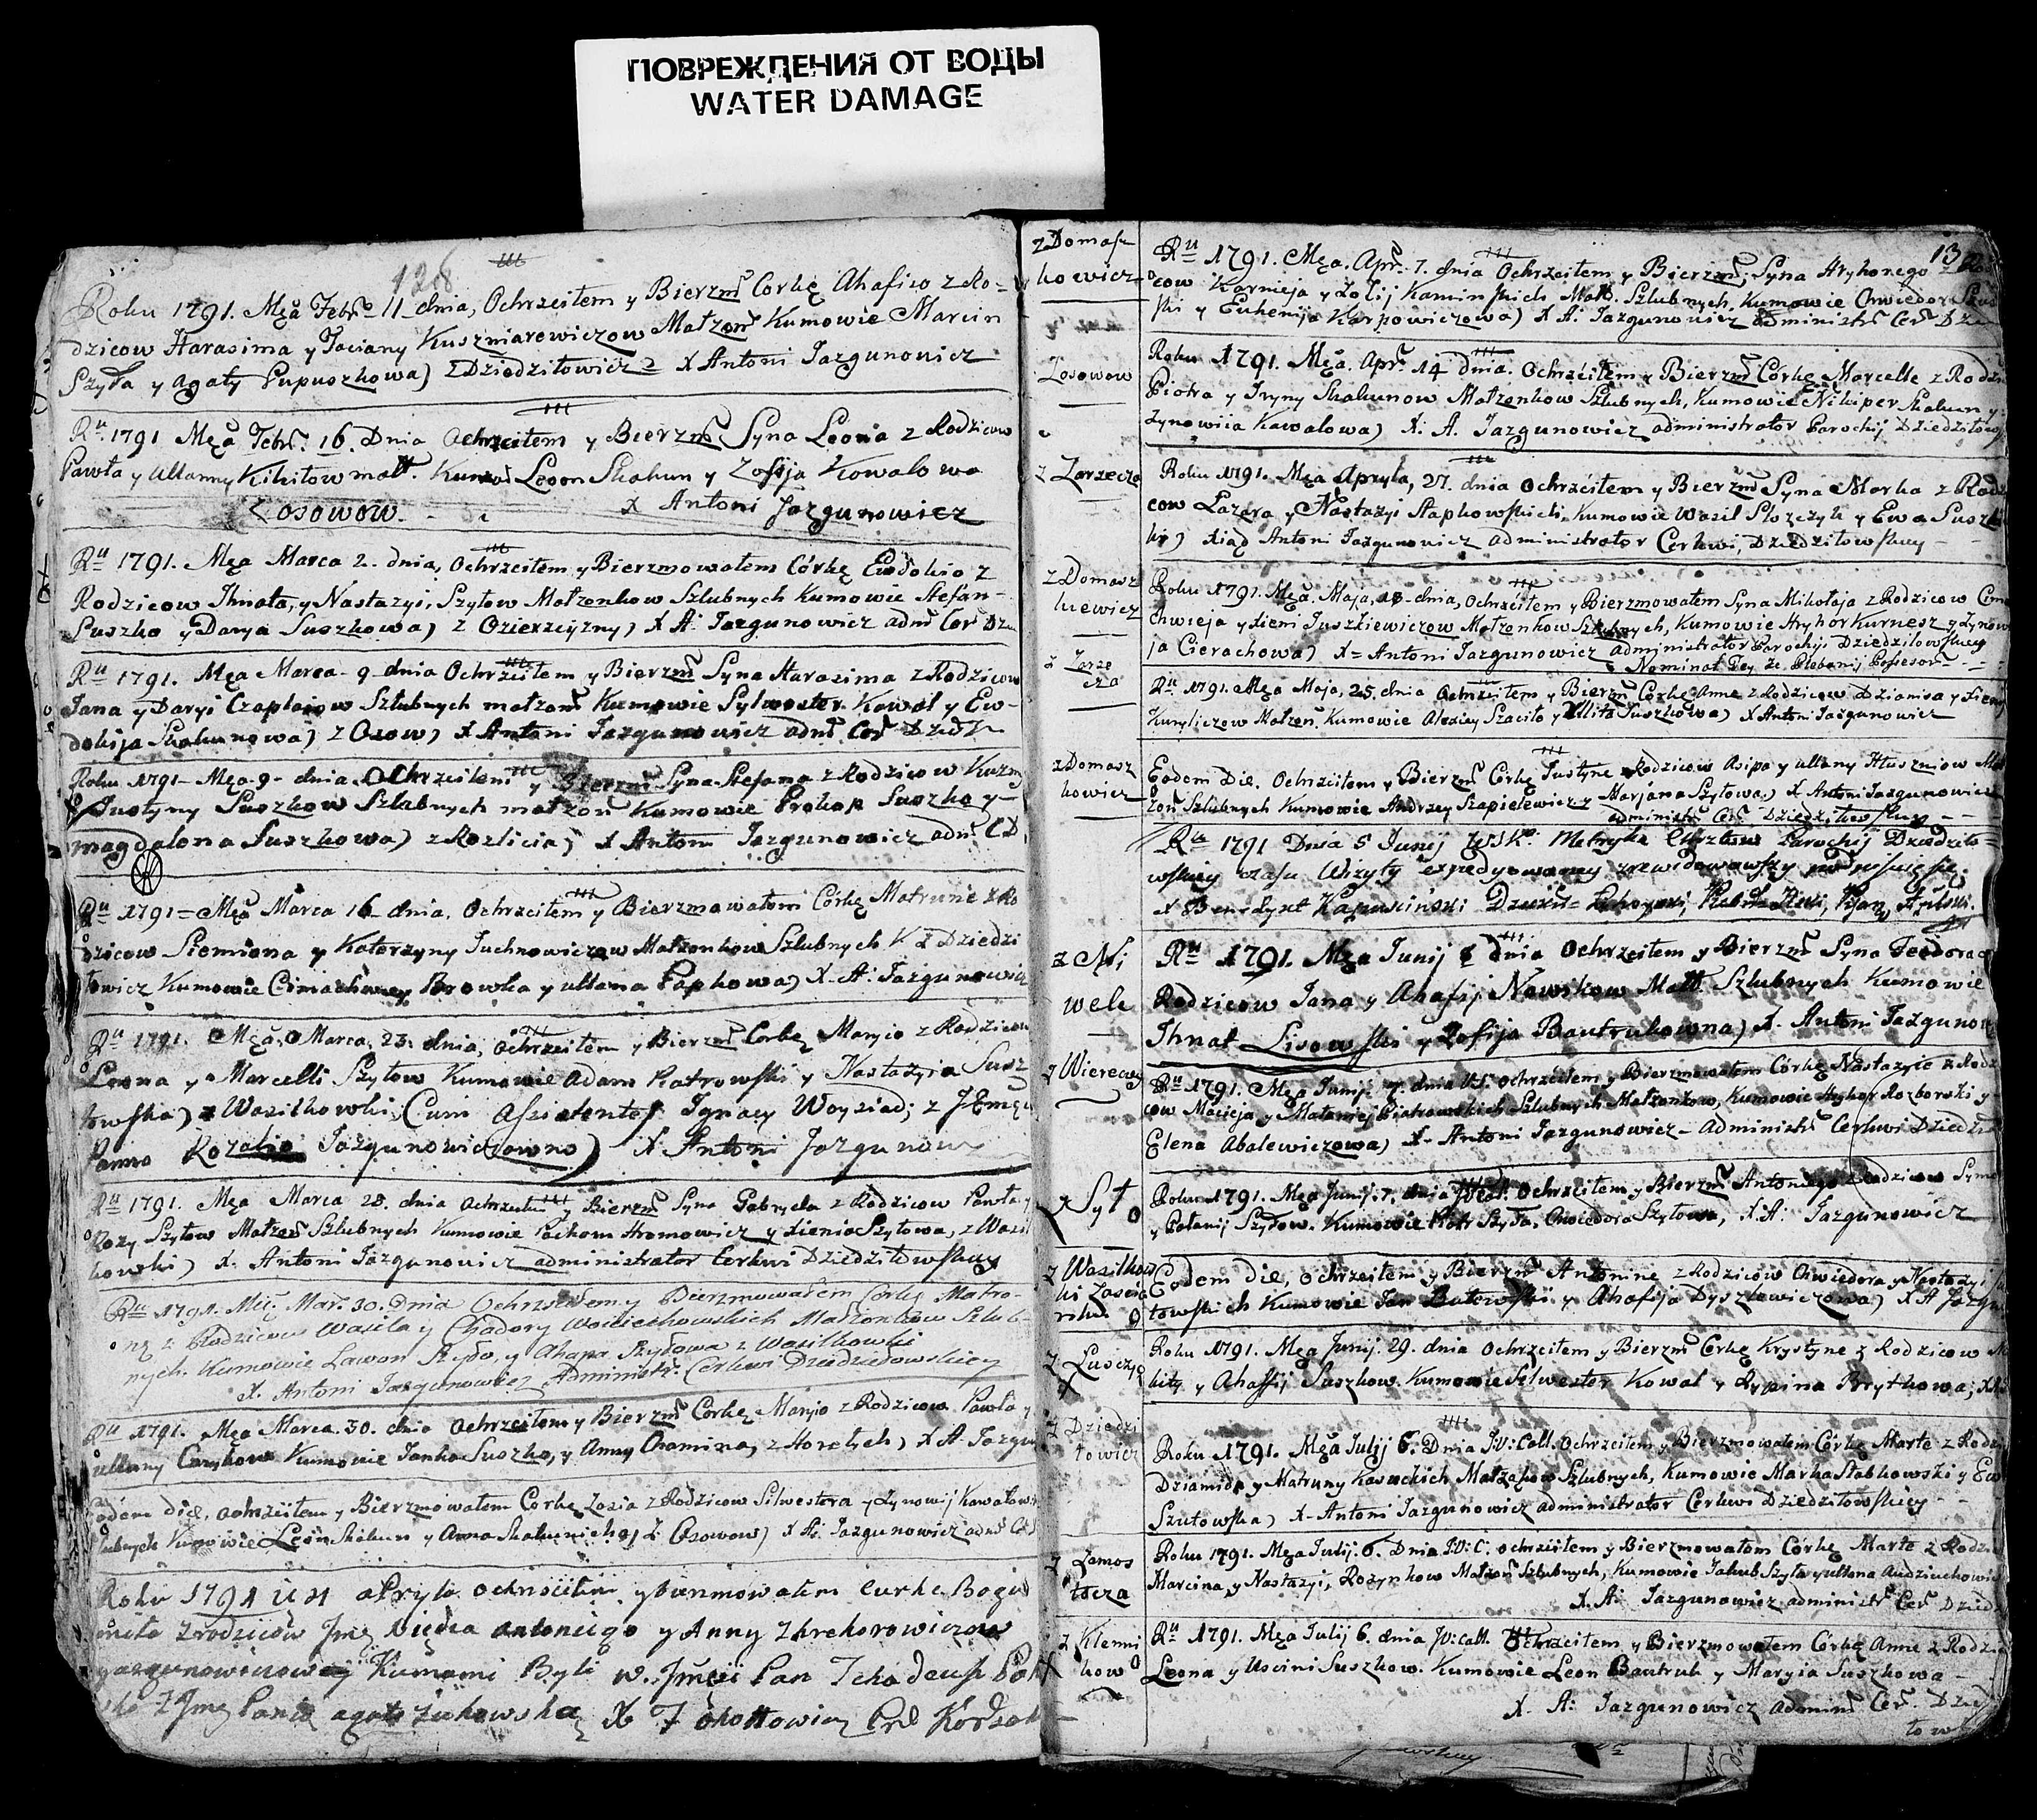 ПОВРЕЖДЕНИЯ ОТ ВОДЫ
WATER DAMAGE
128
Roku 1791. Mca Febr 11 dnia, Ochrzciłem y Bierzm Corkę Ahafią z Ro-
dzicow Harasima y Taciany Kuszniarewiczow Małzon Kumowie Marcin
Szyła y Agaty Pupuszkowa) z Dziedziłowicz X Antoni Jazgunowicz
Ru 1791 Mca Febr. 16. Dnia Ochrzciłem y Bierzm Syna Leona z Rodzicow
Pawła y Ullanny Kikitow małż. Kumow Leon Skakun y Zofija Kowalowa
z Osowow. X Antoni Jazgunowicz
Ru 1791. Mca Marca 2. dnia, Ochrzciłem y Bierzmowałem Córkę Ewdokią z
Rodzicow Ihnata, y Nastazyi, Szyłow Małzonkow Szlubnych Kumowie Stefan-
Suszko y Darya Suszkowa) z Ozierzcyzny) X A: Jazgunowicz adm Cer Dz
Ru 1791. Mca Marca 9 dnia Ochrzciłem y Bierzm Syna Harasima z Rodzicow
Jana y Daryi Czaplaiow Szlubnych małzon Kumowie Sylwester Kowal y Ew-
dokija Skakunowa) z Osow) X Antoni Jazgunowicz adm Cer Dzedz
Roku 1791 Mca 9 dnia Ochrzciłem y Bierzm Syna Stefana z Rodzicow Kuzmy
y Justyny Suszkow Szlubnych małzon Kumowie Prokop Suszko y
magdalona Suszkowa) z Rozlicia) X Antoni Jazgunowicz adm C D
Ru 1791 Mca Marca 16 dnia. Ochrzciłem y Bierzmowałem Córkę Matrunę z Ro
dzicow Siemiona y Katerzyny Juchnowiczow Małzonkow Szlubnych z Dziedzi
łowicz Kumowie Browka y Ullana Papkowa) X A: Jazgunowicz
Ru 1791. Mca Marca, 23. dnia, Ochrzciłem y Bierzm Corkę Maryią z Rodzicow
Leona y Marcelli Szyłow Kumowie Adam Piatrowski y Nastazyia Susz
towska) z Wasilkowki, Cum Assistentes Ignacy Woyziad; z
Panną Rozalią Jazgunowiczowną) X Antoni Jazgunow
Ru 1791. Mca Marca 28. dnia Ochrzciłem y Bierzm Syna Gabryela z Rodzicow Pawła y
Rozy Szyłow Małzon Szlubnych Kumowie Pachom Hromowicz y Xienia Szyłowa, z Wasil
kowki) X. Antoni Jazgunowicz administrator Cerkwi Dziedziłowskiey
Ru 1791. Mca Mar. 30. Dnia Ochrzciłem y Bierzmowałem Corkę Matro-
nę z Rodzicow Wasila y Chadory Woyciechowskich Małzonkow Szlub-
nych. Kumowie Lawon Szydo, y Ahapa Szydowa z Wasilkowki
X. Antoni Jazgunowicz Administr. Cerkwi Dziedziłowskiey
Ru 1791. Mca Marca. 30. dnia Ochrzciłem y Bierzm Corkę Maryią z Rodzicow Pawła y
Ullany Kumowie Janka Suszko, y Anny Chomina, z Horełych) X A: Jazgu
Eodem die, Ochrzciłem y Bierzmowałem Corkę Zosia z Rodzicow Silwestera y Zynowij Kowalow
Szlubnych Kumowie Leon Skakun y Anna Skakunicha, z Osowow) X A. Jazgunowicz adm
Roku 1791 apryla ochrzciłem y birzmowałem curke Bogu
miła z rodziców Jmc Xiędza antoniego y Anny z hrehorowiczow
Jazgunowiczowey Kumami Byli w. Pan Tchadeusz
z Jmc Panią agatą żukowską X
13
z Domasz
kowicz
Ru 1791. Mca. Apr. 7. dnia Ochrzciłem y Bierzm; Syna Hryhorego z Ro
cow Karnieja y Zofij Kaminskich Małż. Szlubnych, Kumowie Chwiedor Szus
ski y Euhenija Karpowiczowa) X A: Jazgunowicz administr Cer Dzie
z Osowow
Roku 1791. Mca. Apr. 14 dnia. Ochrzciłem y Bierzm Córkę Marcellę z Rodzi
Piotra y Iryny Skakunow Małzonkow Szlubnych, Kumowie Nikiper Skakun y
Zynowiia Kawalowa) X. A. Jazgunowicz administrator Parochij Dziedziłow
z Zarzecza
Roku 1791. Mca Apryla, 27. dnia Ochrzciłem y Bierzm Syna Marka z Rodzi
cow Łazara y Nastazyi Stapkowskich. Kumowie Wasil y Ewa Suszk
Xiąd Antoni Jazgunowicz administrator Cerkwi, Dziedziłowskiey
z Domasz
kiewicz
Roku 1791. Mca. Maja, 18 dnia, Ochrzciłem y Bierzmowałem Syna Mikołaja z Rodzicow Cimo
chwieja y Xieni Juszkiewiczow Małzonkow Szlubnych, Kumowie Hryhor Kurnesz y Zynow
ja Cierachowa) X Antoni Jazgunowicz administrator Parochyi Dziedziłowskiey
z Zarze
cza
Ru 1791. Mca Maja, 25. dnia Ochrzciłem y Bierzm Córkę Annę z Rodzicow Dzianisa y Xieni
Kuryliczow Małzon. Kumowie Alexiey Szaciło y Ullita Juszkowa) X Antoni Jazgunowicz
z Domasz
kowicz
Eodem Die. Ochrzciłem y Bierzm Córkę Justynę z Rodzicow Asipa y Ullany Hłuszniow Mał
żon Szlubnych Kumowie Andrzey Szapielewicz y Marjana Szyłowa) X Antoni Jazgunowicz
administr Cer Dziedziłowskiey
Ru 1791 Dnia 5 Junij Metryka Chrztow Parochij Dziedziło
wskiey czasu Wizyty expedyowaney zrewidowawszy podpisuję się
X Benedykt Kapuściński
z Ni
wek
Ru 1791. Mca Junij 6 dnia Ochrzciłem y Bierzm Syna Teodora z
Rodzicow Jana y Ahafij Nowikow Małż. Szlubnych Kumowie
Ihnat Lisowski y Zofija Bautrukowna) X. Antoni Jazgunow
Ru 1791. Mca Junij. 7. dnia Ochrzciłem y Bierzmowałem Córkę Nastazyię z Rodzi
cow Macieja y Małaniej Piatrowskich Szlubnych Małzonkow, Kumowie Hryhor Rozborski y
Elena Abalewiczowa) X. Antoni Jazgunowicz Administr Cerkwi Dziedzi
Roku 1791. Mca Junij. 7. dnia Ochrzciłem y Bierzm Antoniego z Rodzicow Syme
y Połanij Szyłow. Kumowie Piotr Szyła, Chwiedora Szyłowa, X. A: Jazgunowicz
z Wasilkow
ki Zaścia
nku
Eodem die, Ochrzciłem y Bierzm Antoninę z Rodzicow Chwiedora y Nastazyi
towskich Kumowie Jan Butowski y Ahafija Dyszlewiczowa) X A Jazgu
Roku 1791. Mca Junij. 29. dnia Ochrzciłem y Bierzm Corkę Krystynę z Rodzicow
kity y Ahafij Suszkow. Kumowie Silwester Kowal y Rypina
z Dziedzi
łowicz
Roku 1791. Mca Julij 6. Dnia Ochrzciłem y Bierzmowałem Córkę Martę z Rodzi
y Matruny Małzonkow Szlubnych, Kumowie Marka Stabkowski y Ew
Szutowska) X Antoni Jazgunowicz administrator Cerkwi Dziedziłowskiey
z Zamos
tocza
Roku 1791. Mca Julij. 6. Dnia Ochrzciłem y Bierzmowałem Córkę Martę z Rodzi
Marcina y Nastazyi, Rozynkow Małzon Szlubnych, Kumowie Jakub Szyła y Ullana Audziuchowicz
X. A: Jazgunowicz administr Cer Dziedz
z Klenni
kow
Ru 1791. Mca Julij 6. dnia Ochrzciłem y Bierzmowałem Córkę Annę z Rodzi
Leona y Uscini Suszkow. Kumowie Leon Bautruk y Maryia Suszkowa
X. A: Jazgunowicz admin Cer. Dzied